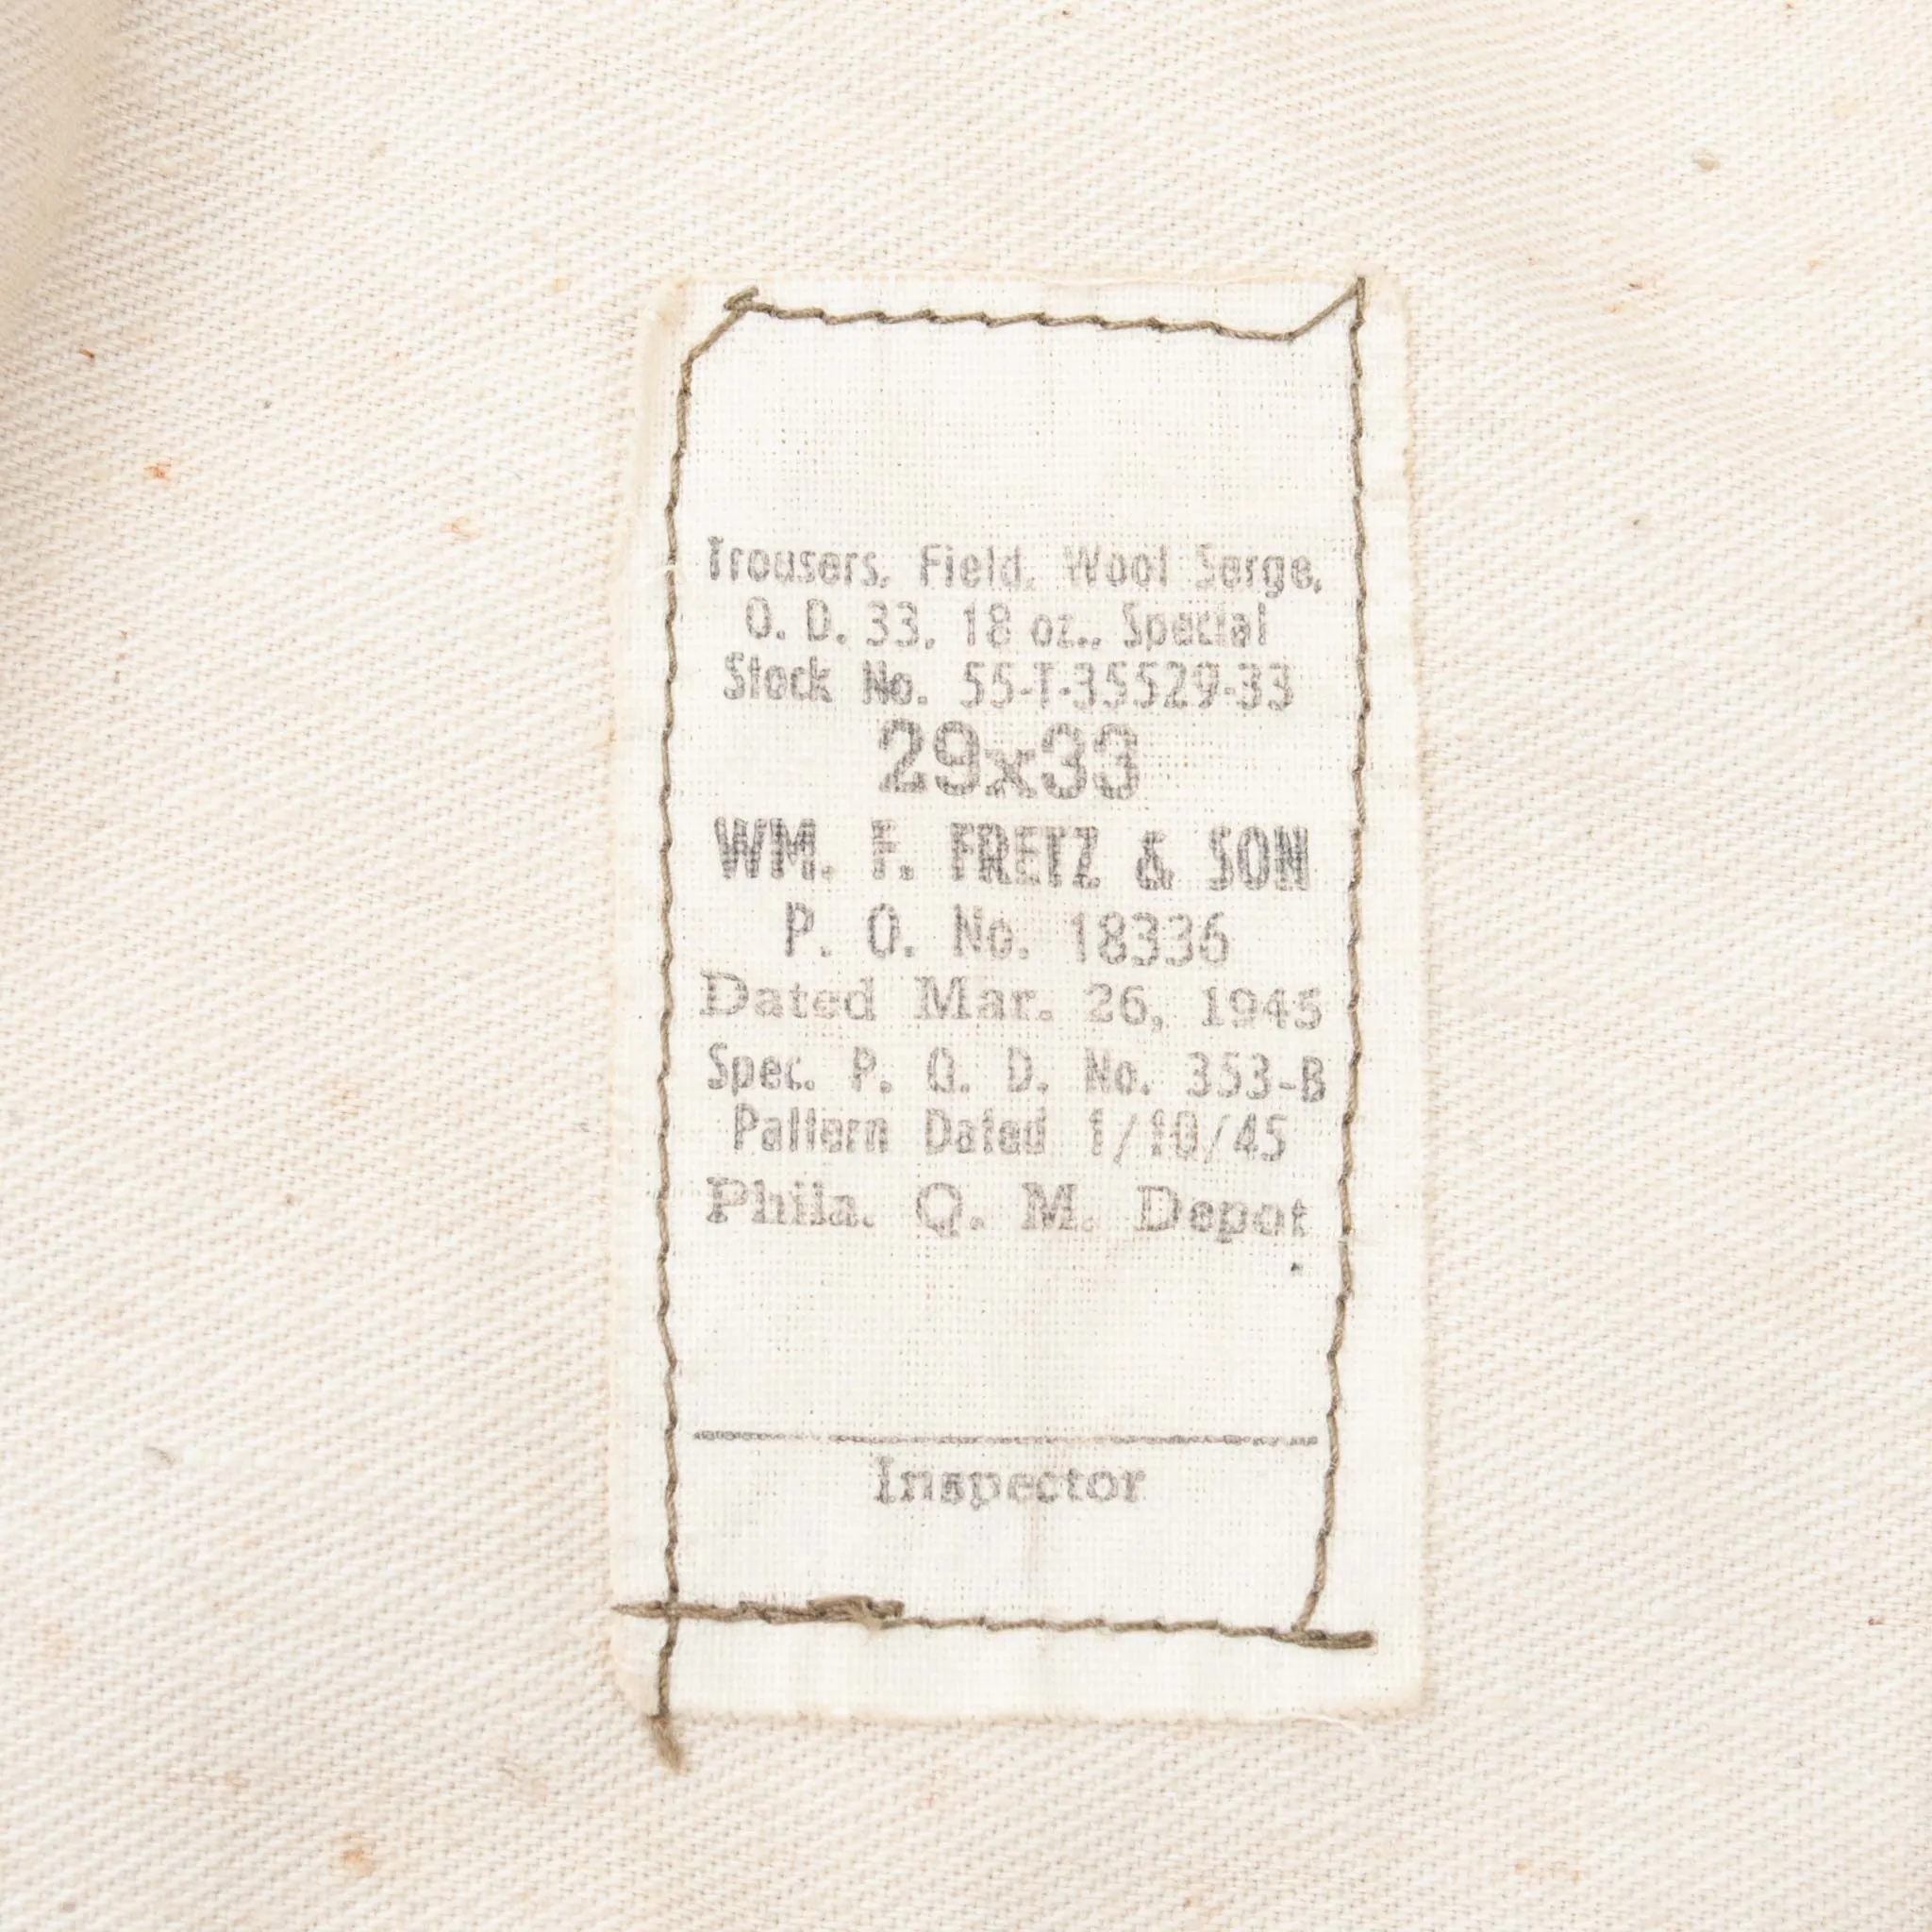 Trousers, Field, Wool Serge,
O. D. 33, 18 oz., Special
Stock No. 55-T-35529-33
29x33
WM. F. FRETZ & SON
P. O. No. 18336
Dated Mar. 26, 1945
Spec. P. Q. D. No. 353-B
Pattern Dated 1/10/45
Phila. Q. M. Depot
Inspector